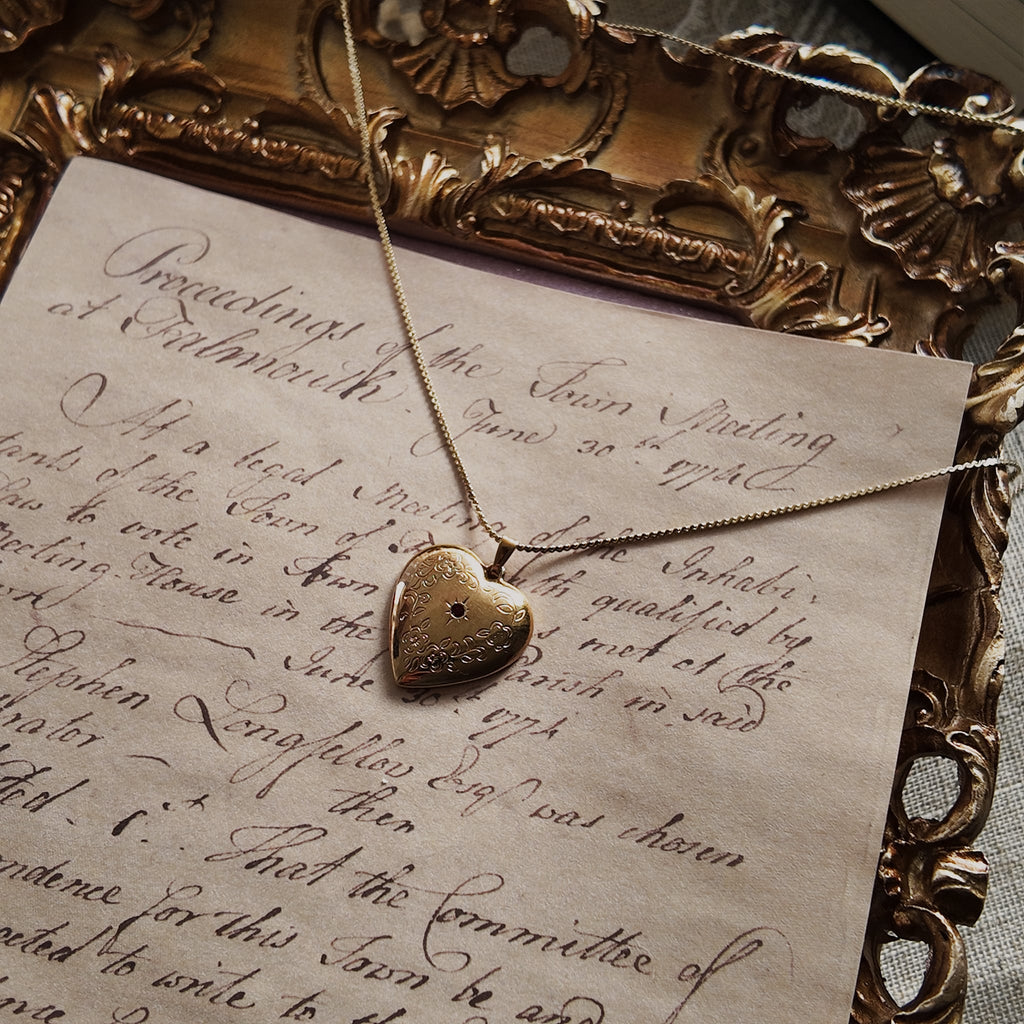 Proceedings of the Town Meeting
at Falmouth. June 30th 1774
At a legal Meeting of the Inhabi-
tants of the Town of qualified by
Law to vote in Town met at the
Meeting-House in the Parish in said
June 30th 1774
Stephen Longfellow Esqr was chosen
then
That the Committee of
for this Town be and
to write to the